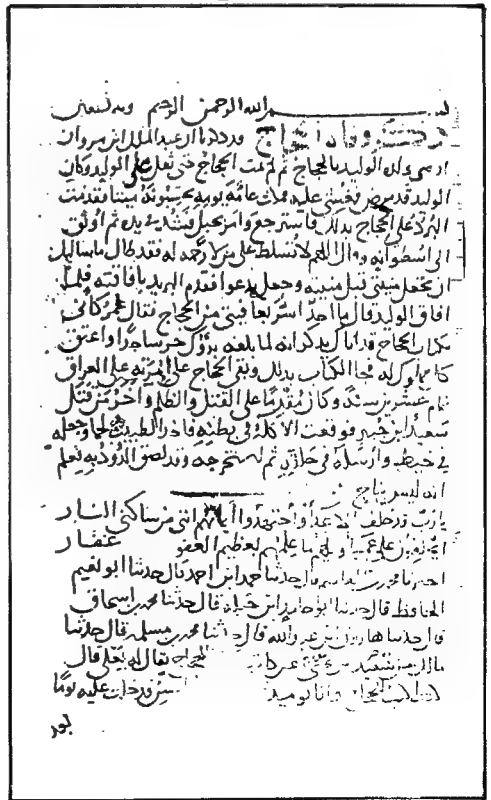 بسم الله الرحمن الرحيم وبه نستعين
ذكر وفاة الحجاج قد ذكرنا ان عبد الملك ابن مروان
اوصى ولده الوليد بالحجاج ثم لم يمت الحجاج حتى ثقل على الوليد وكان
الوليد قد مرض فغشى عليه فمكث عامة يومه يحسبونه ميتا فقدمت
البرد على الحجاج بذلك فاسترجع وامر بحبل فشد في يده ثم اوثق
الى اسطوانه وقال اللهم لا تسلط على من لا رحمة له فقد طال ما سالتك
ان تجعل منيتي قبل منيته وجعل يدعوا فقدم البريد بافاقته فلما
افاق الوليد قال ما احد اسر بعافيتي من الحجاج فقال عمر كأني
بكتاب الحجاج قد اتاك يذكر انه لما بلغه برؤك خر ساجدا واعتق
كل مملوك له فجا الكتاب بذلك وبقي الحجاج على امرته على العراق
تمام عشرين سنة وكان مقدما على القتل والظلم واخر من قتل
سعيد ابن جبير فوقعت الاكلة في بطنه فاخذ الطبيب لحما وجعله
في خيط وارسله في حلقه ثم استخرجه وقد لصق الدود به فعلم
انه ليس بناج
يا رب قد حلف الاعداء واجتهدوا ايمانهم انني من ساكني النار
ايحلفون على عمياء ويحهم ما علمهم بعظيم العفو غفار
اخبرنا محمد قال حدثنا حمد ابن احمد قال حدثنا ابو نعيم
الحافظ قال حدثنا ابو حامد ابن جبلة قال حدثنا محمد بن اسحاق
قال حدثنا هارون ابن عبد الله قال حدثنا محمد بن مسلمة قال حدثنا
مالك بن يحيى بن سعيد عن كاتب الحجاج يقال له يعلى قال
كنت اكتب للحجاج وانا يوميذ فدخلت عليه يوما
بعد